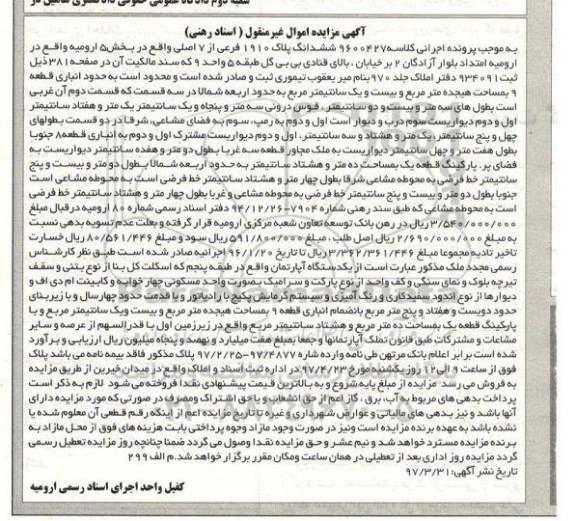 آگهی مزایده اموال غیرمنقول ( اسناد رهنی)
به موجب پرونده اجرائی کلاسه ۹۶۰۰۴۲۷ ششدانگ پلاک ۱۹۱۰ فرعی از ۷ اصلی واقع در بخش۵ ارومیه واقع در
ارومیه امتداد بلوار آزادگان ۲ بر خیابان ، بالای قنادی بی بی گل طبقه ۵ واحد ۹ که سند مالکیت آن در صفحه ۳۸۱ ذیل
ثبت ۹۳۴۰۹۱ دفتر املاک جلد ۹۷۰ بنام میر یعقوب تیموری ثبت و صادر شده است و محدود است به حدود انباری قطعه
۹ بمساحت هیجده متر مربع و بیست و یک سانتیمتر مربع به حدود اربعه شمالا در سه قسمت که قسمت دوم آن غربی
است بطول های سه متر و بیست و دو سانتیمتر ، قوس درونی سه متر و پنجاه و یک سانتیمتر یک متر و هفتاد سانتیمتر
اول و دوم دیواریست سوم درب و دیوار است اول و دوم به رمپ، سوم به فضای مشاعی، شرقا در دو قسمت بطولهای
چهل و پنج سانتیمتر، یک متر و هشتاد و سه سانتیمتر، اول و دوم دیواریست مشترک اول و دوم به انباری قطعه ۸ جنوبا
بطول هفت متر و چهل سانتیمتر دیواریست به ملک مجاور قطعه سه غربا بطول دو متر و هفده سانتیمتر دیواریست به
فضای پر. پارکینگ قطعه یک بمساحت ده متر و هشتاد سانتیمتر به حدود اربعه شمالا بطول دو متر و بیست و پنج
سانتیمتر خط فرضی به محوطه مشاعی شرقا بطول چهار متر و هشتاد سانتیمتر خط فرضی است به محوطه مشاعی است
جنوبا بطول دو متر و بیست و پنج سانتیمتر خط فرضی به محوطه مشاعی و غربا بطول چهار متر و هشتاد سانتیمتر خط فرضی
است به محوطه مشاعی که طبق سند رهنی شماره ۷۹۰۴-۹۴/۱۲/۲۶ دفتر اسناد رسمی شماره ۸۰ ارومیه در قبال مبلغ
۳/۵۴۰/۰۰۰/۰۰۰ ریال در رهن بانک توسعه تعاون شعبه مرکزی ارومیه قرار گرفته و بعلت عدم تسویه بدهی نسبت
به مبلغ ۲/۶۹۰/۰۰۰/۰۰۰ ریال اصل طلب ، مبلغ ۵۹۱/۸۰۰/۰۰۰ ریال سود و مبلغ ۸۰/۵۶۱/۴۴۶ ریال خسارت
تاخیر تادیه مجموعا مبلغ ۳/۳۶۲/۳۶۱/۴۴۶ ریال تا تاریخ ۹۶/۱/۲۰ اجرائیه صادر شده است طبق نظر کارشناس
رسمی مجدد ملک مذکور عبارت است از یکدستگاه آپارتمان واقع در طبقه پنجم که اسکلت کل بنا از نوع بتنی و سقف
تیرچه بلوک و نمای سنگی و کف واحد از نوع پارکت و سرامیک بصورت واحد مسکونی چهار خوابه و کابینت ام دی اف و
دیوارها از نوع اندود سفیدکاری و رنگ آمیزی و سیستم گرمایش پکیج با رادیاتور و با قدمت حدود چهارسال و با زیربنای
حدود دویست و هفتاد و پنج متر مربع بانضمام انباری قطعه ۹ بمساحت هیجده متر مربع و بیست ویک سانتیمتر مربع و با
پارکینگ قطعه یک بمساحت ده متر مربع و هشتاد سانتیمتر مربع واقع در زیرزمین اول با قدرالسهم از عرصه و سایر
مشاعات و مشترکات طبق قانون تملک آپارتمانها و جمعا بمبلغ هفت میلیارد و نهصد و پنجاه میلیون ریال ارزیابی و برآورد
شده است برابر اعلام بانک مرتهن طی نامه وارده شماره ۹۷/۴۸۷۷-۹۷/۲/۲۵ پلاک مذکور فاقد بیمه نامه می باشد پلاک
فوق از ساعت ۹ الی ۱۲ روز یکشنبه مورخ ۹۷/۴/۲۳ در اداره ثبت اسناد و املاک واقع در میدان خیبرین از طریق مزایده
به فروش می رسد مزایده از مبلغ پایه شروع و به بالاترین قیمت پیشنهادی نقدا فروخته می شود لازم به ذکر است
پرداخت بدهی های مربوط به آب، برق ، گاز اعم از حق انشعاب و یا حق اشتراک و مصرف در صورتی که مورد مزایده دارای
آنها باشد و نیز بدهی های مالیاتی و عوارض شهرداری و غیره تا تاریخ مزایده اعم از اینکه رقم قطعی آن معلوم شده یا
نشده باشد به عهده برنده مزایده است ونیز در صورت وجود مازاد وجوه پرداختی بابت هزینه های فوق از محل مازاد به
برنده مزایده مسترد خواهد شد و نیم عشر و حق مزایده نقدا وصول می گردد ضمنا چنانچه روز مزایده تعطیل رسمی
گردد مزایده روز اداری بعد از تعطیلی در همان ساعت ومکان مقرر برگزار خواهد شد.م الف ۲۹۹
تاریخ نشر آگهی: ۹۷/۳/۳۱
کفیل واحد اجرای اسناد رسمی ارومیه